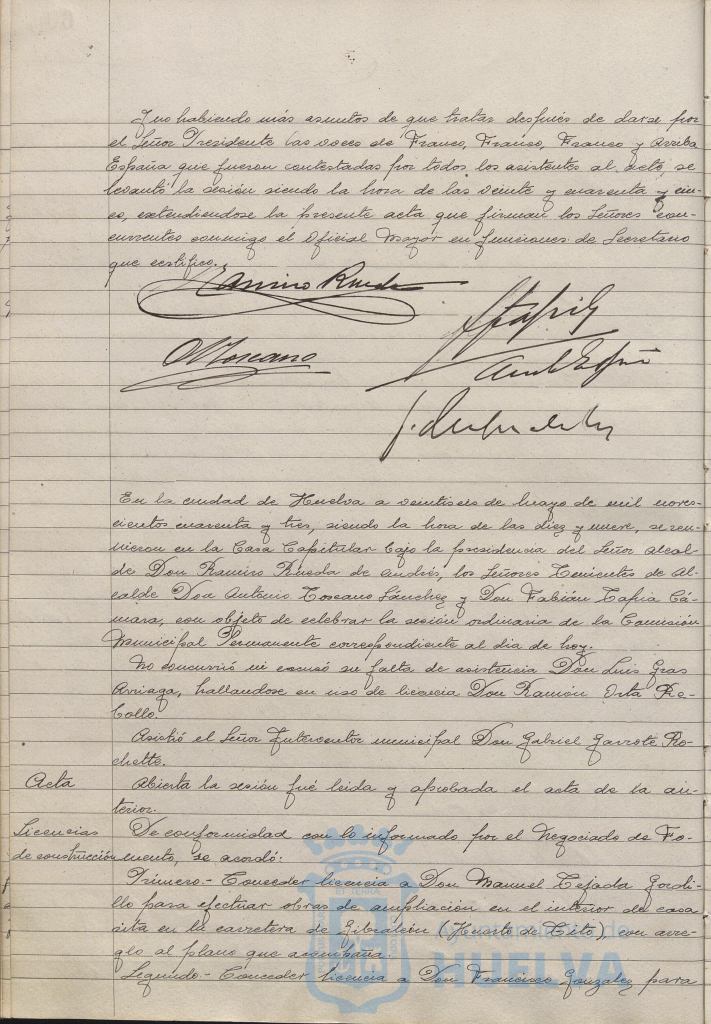 Y no habiendo más asuntos de que tratar después de darse por
el Señor Presidente las voces de Franco, Franco, Franco y Arriba
España que fueron contestadas por todos los asistentes al acto se
levantó la sesión siendo la hora de las veinte y cuarenta y cin-
co, extendiendose la presente acta que firman los Señores con-
currentes conmigo el Oficial Mayor en funciones de Secretario
que certifico.
Ramiro Rueda
A Toscano
En la ciudad de Huelva a veintiseis de mayo de mil nove-
cientos cuarenta y tres, siendo la hora de las diez y nueve, se reu-
nieron en la Casa Capitular bajo la presidencia del Señor Alcal-
de Don Ramiro Rueda de Andrés, los Señores Tenientes de Al-
calde Don Antonio Toscano Sánchez y Don Fabián Tapia Cá-
mara, con objeto de celebrar la sesión ordinaria de la Comisión
Municipal Permanente correspondiente al dia de hoy.
No concurrió ni excusó su falta de asistencia Don Luis Gras
Arriaga, hallandose en uso de licencia Don Ramón Orta Re-
bollo.
Asistió el Señor Interventor municipal Don Gabriel Garrote Ro-
chette.
Acta Abierta la sesión fué leida y aprobada el acta de la an-
terior.
Licencias De conformidad con lo informado por el Negociado de Fo-
de construcción mento, se acordó:
Primero.- Conceder licencia a Don Manuel Tejada Gordi-
llo para efectuar obras de ampliación en el interior de casa
sita en la carretera de Gibraleón (Huerto de Tito), con arre-
glo al plano que acompaña.
Segundo.- Conceder licencia a Don Francisco Gonzalez para
HUELVA